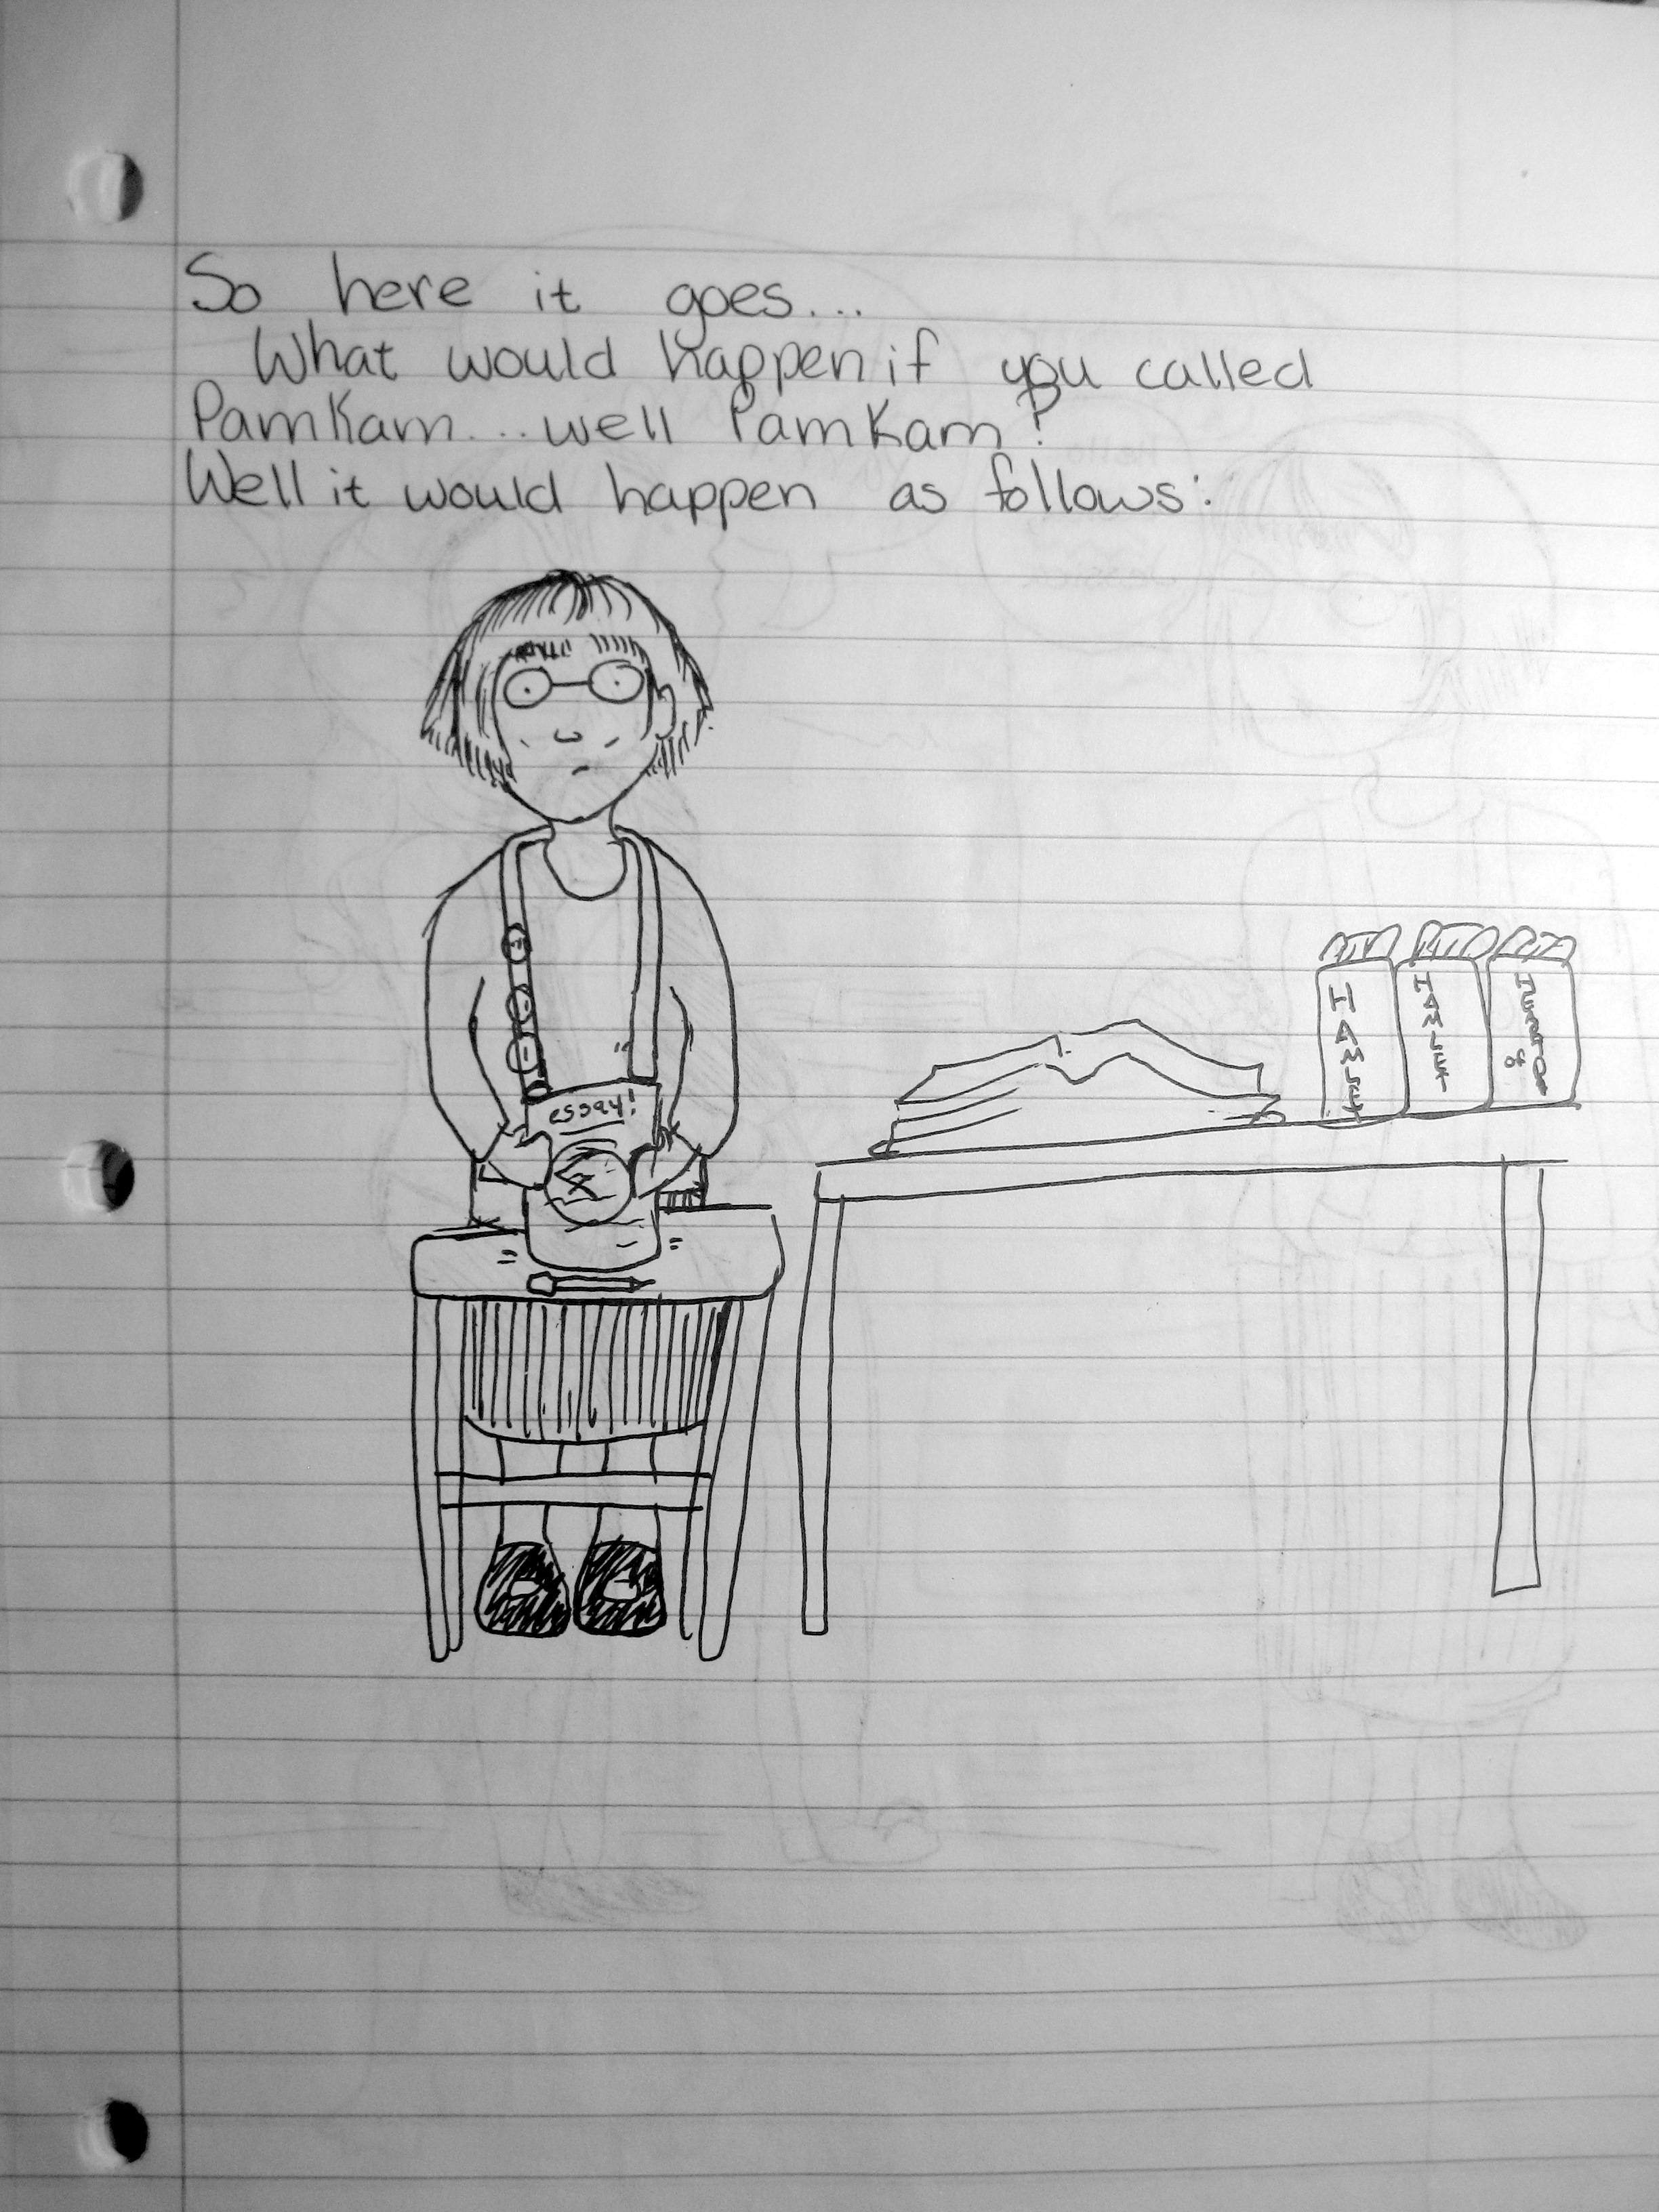 So here it goes...
What would happen if you called
PamKam...well PamKam?
Well it would happen as follows:
essay!
HAMLET
HAMLET
of